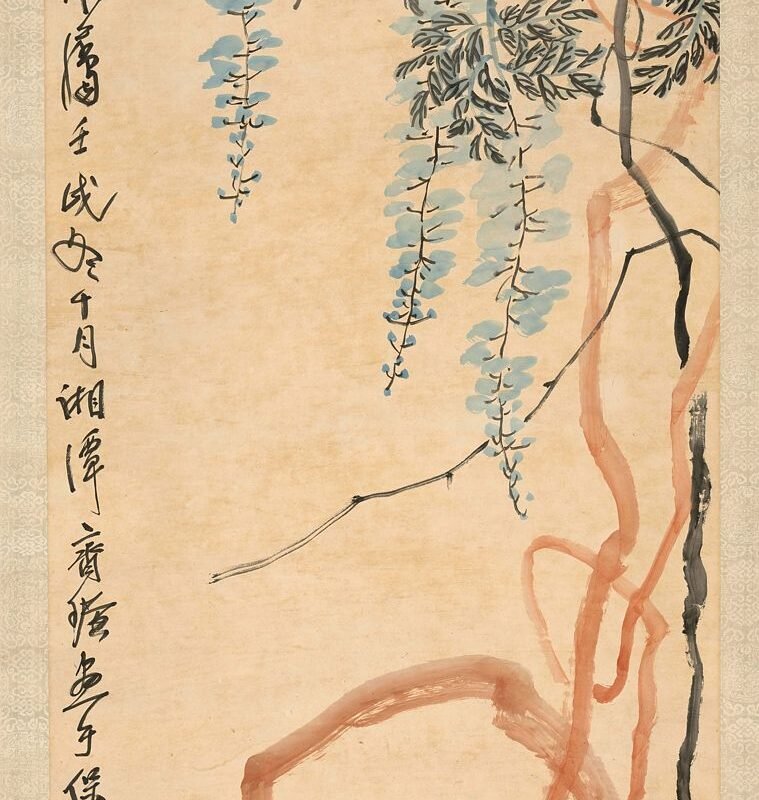 壬戌冬十月湘潭齊璜畫于保